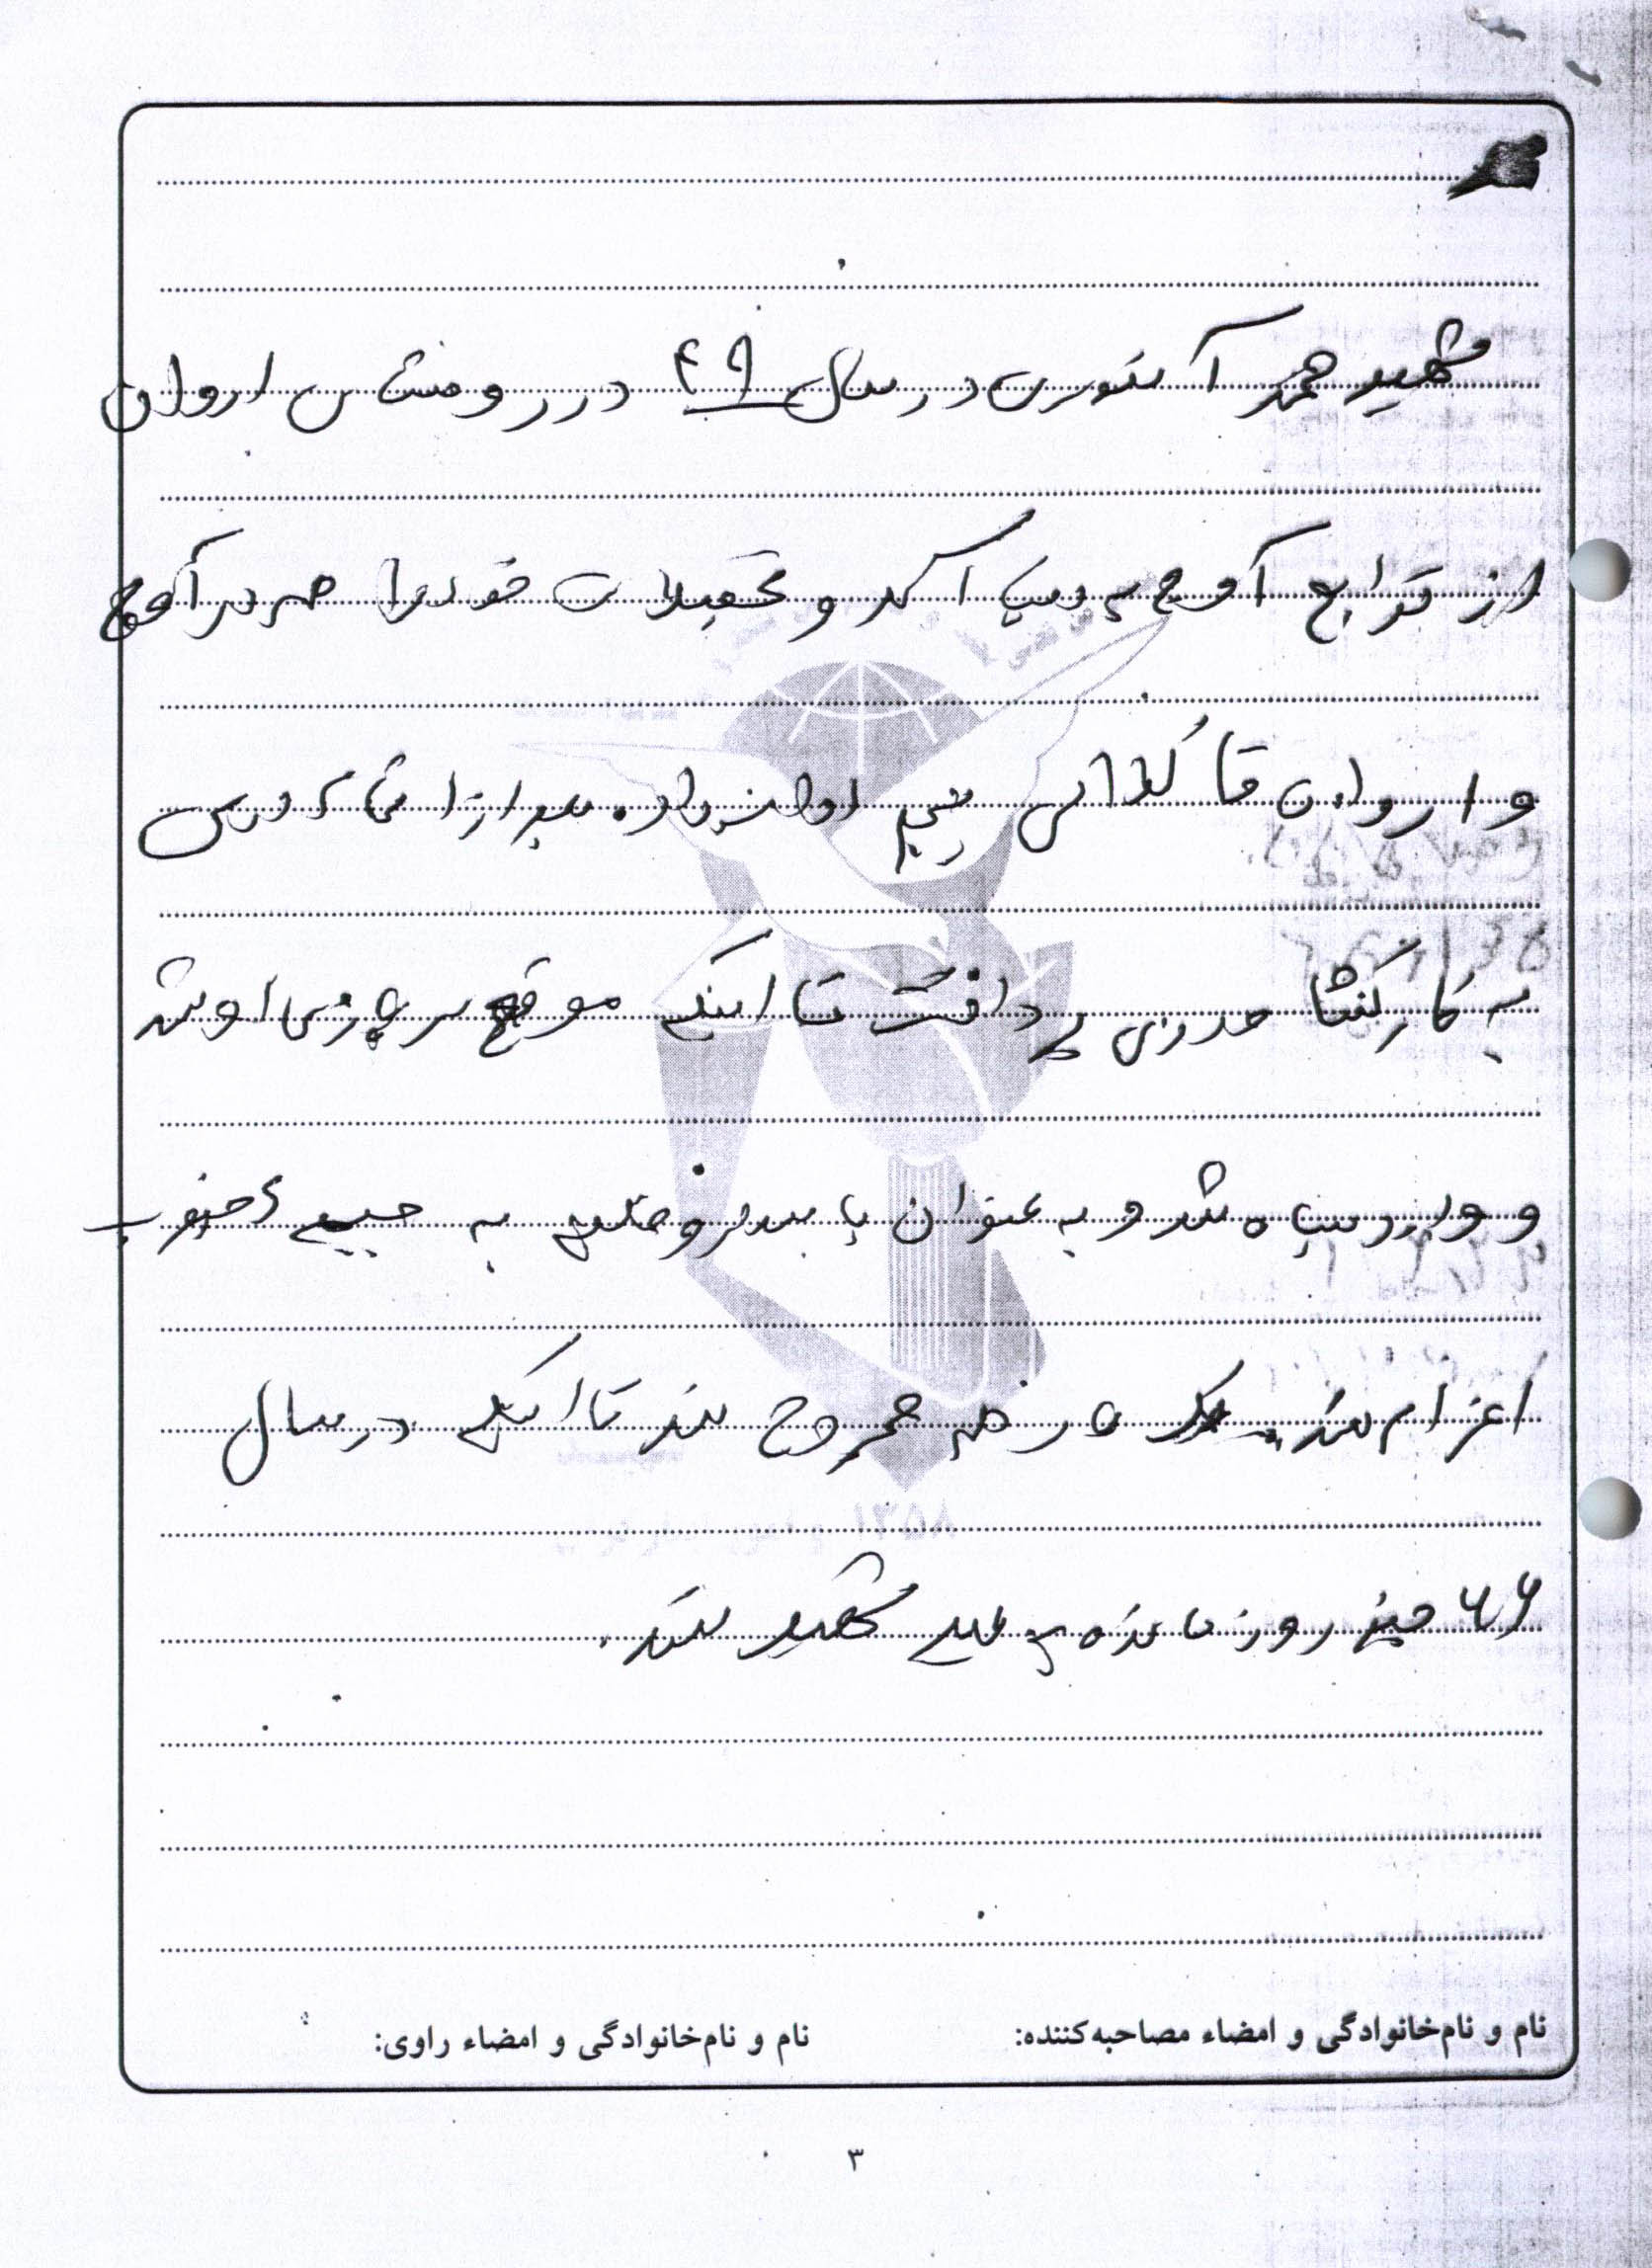 شهید محمد آ در سال ۴۹ در روستای اروان
از توابع آوج به دنیا آمد و تحصیلات خود را در آوج
و اروان تا کلاس پنجم ادامه داد. بعد از اتمام درس
به کار کشاورزی پرداخت تا اینکه موقع سربازی او شد
و وارد سپاه شد و به عنوان پاسدار وظیفه به جبهه جنوب
اعزام شد. یک بار هم مجروح شد تا اینکه در سال
۶۶ چند روز مانده به عید شهید شد.
نام و نام‌خانوادگی و امضاء مصاحبه‌کننده:
نام و نام‌خانوادگی و امضاء راوی:
۳
۱۳۵۸